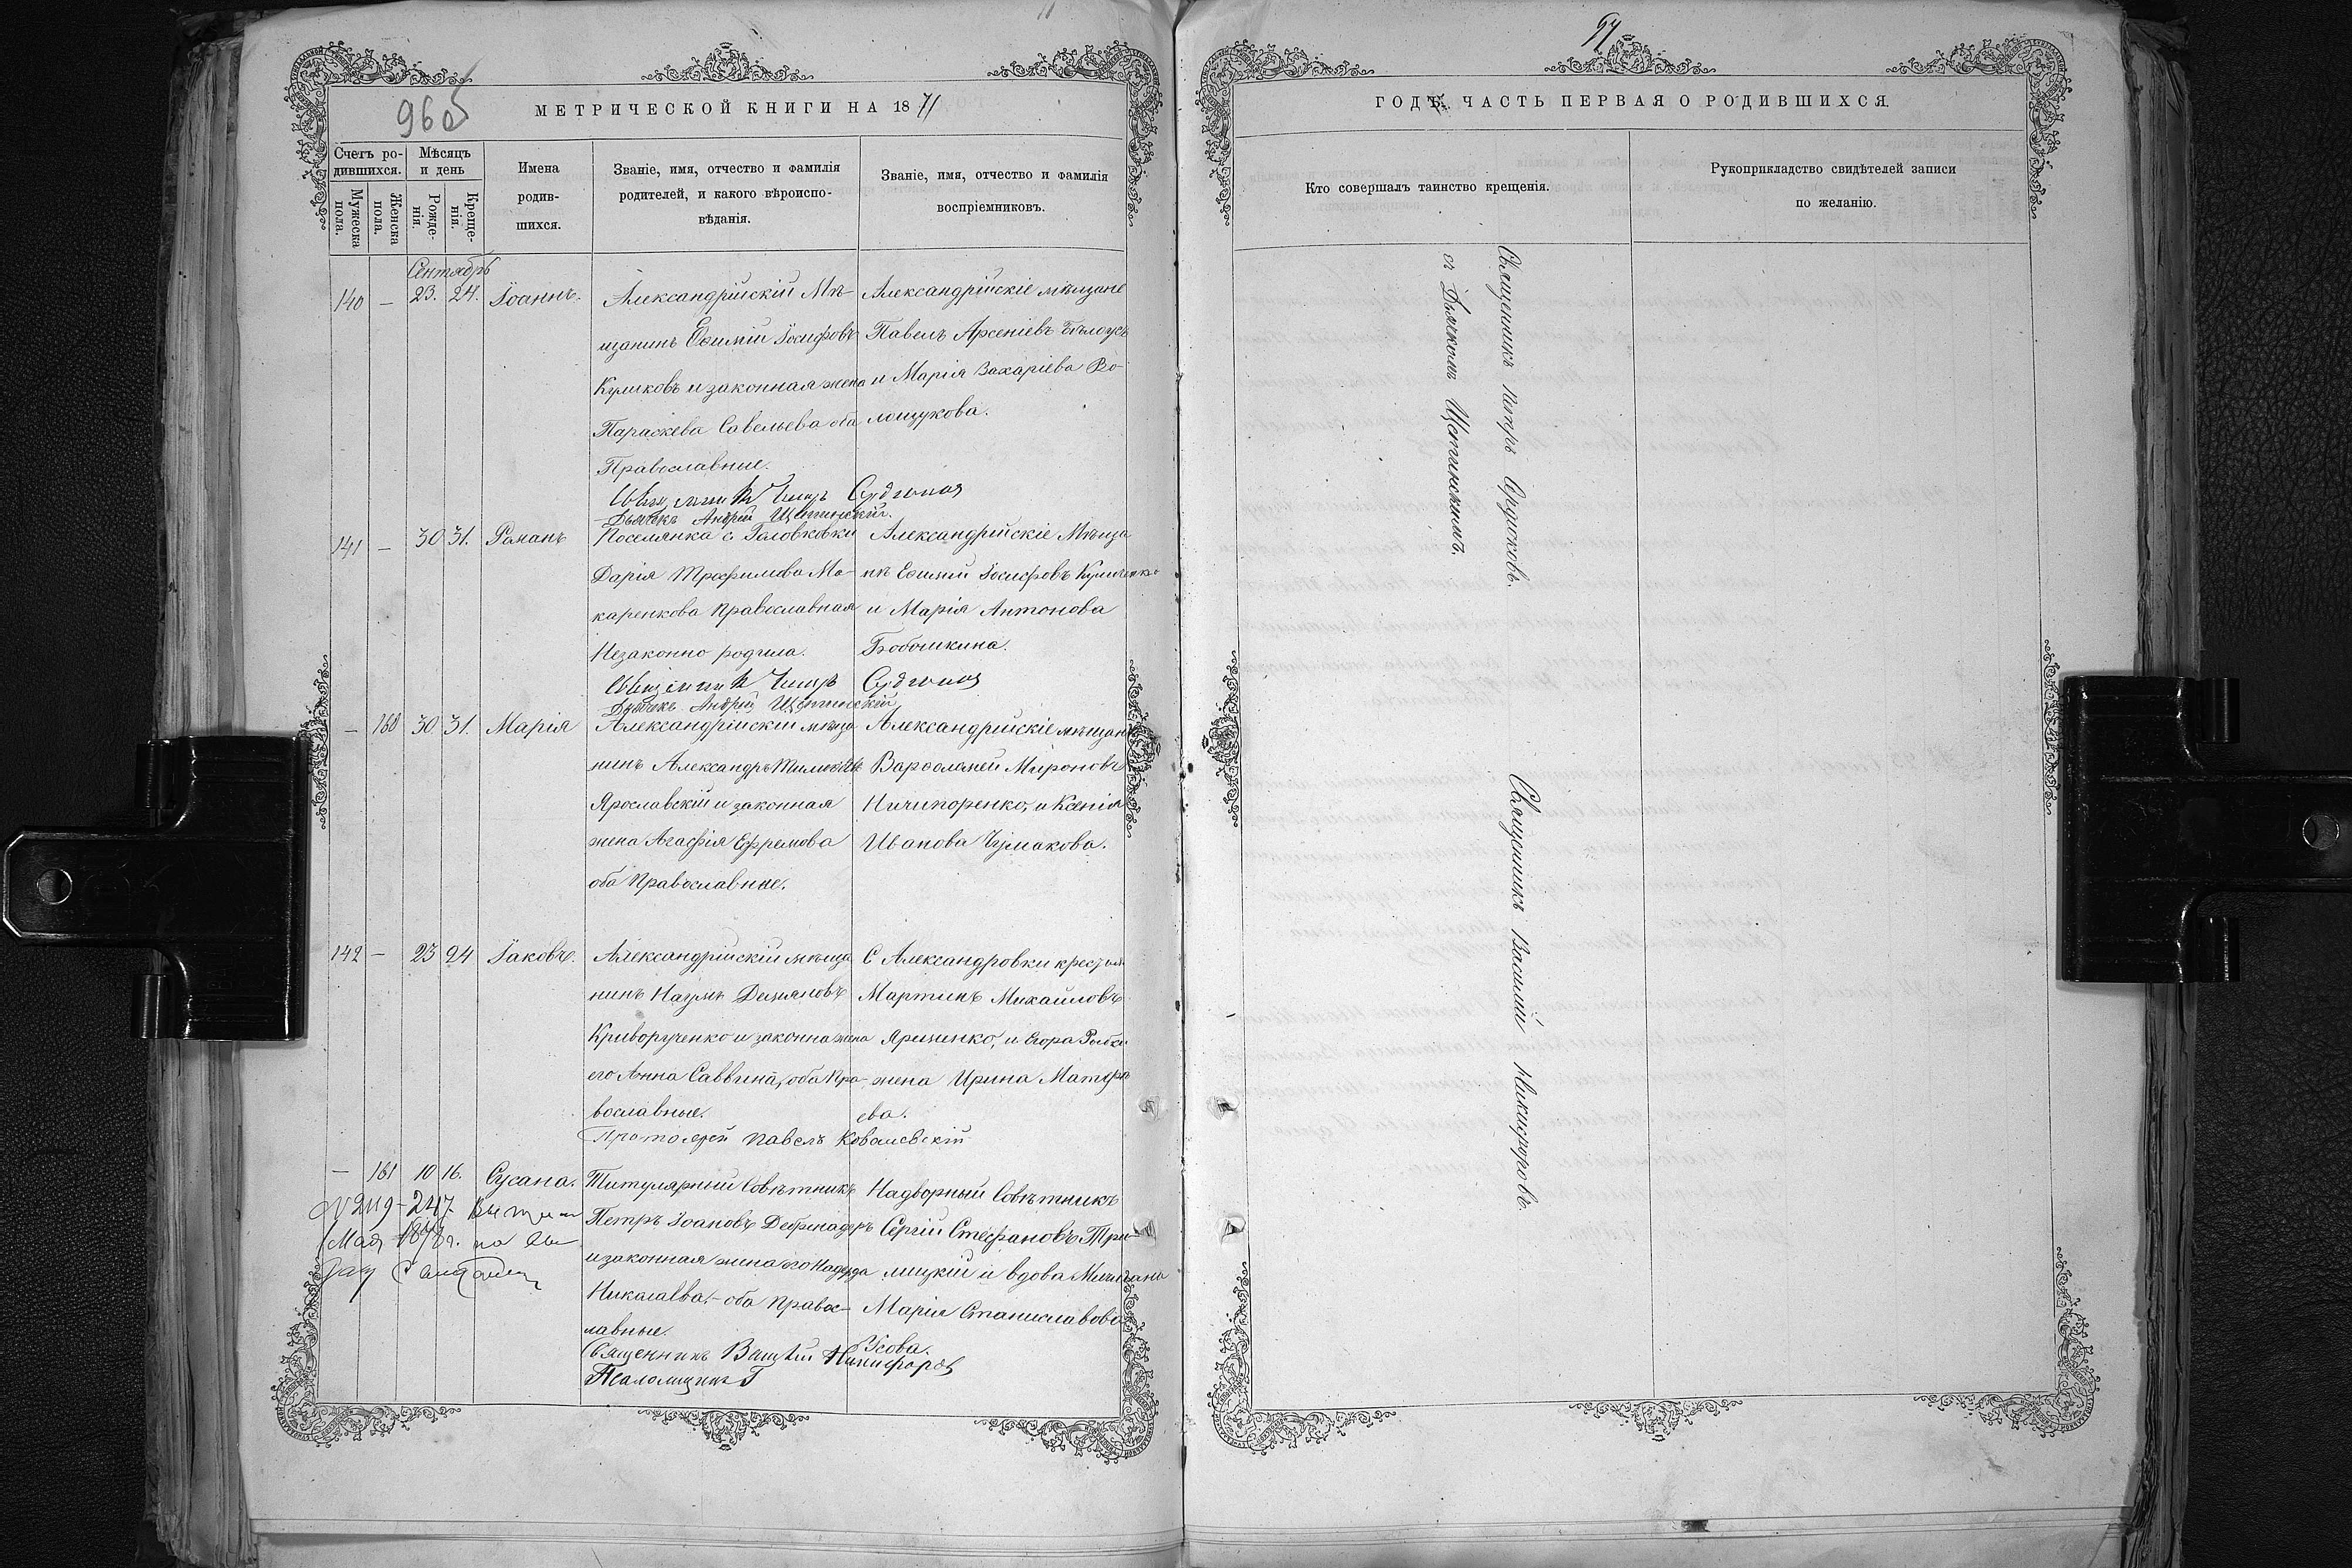 960
МЕТРИЧЕСКОЙ КНИГИ НА 1871
Счетъ ро-
дившихся.
Мѣсяцъ
и день
Мужеска
пола.
Женска
пола.
Рожде-
нія.
Креще-
нія.
Имена
родив-
шихся.
Званіе, имя, отчество и фамилія
родителей, и какого вѣроиспо-
вѣданія.
Званіе, имя, отчество и фамилія
воспріемниковъ.
Сентябрь
140 — 23. 24. Іоаннъ.
Александрійскій Мѣ-
щанинъ Евѳимій Іосифовъ
Куликовъ и законная жена
Параскева Савельева оба
Православные.
Александрійскіе мѣщане
Павелъ Арсеніевъ Бѣлоусъ
и Марія Захаріева Во-
лощукова.
Дьячекъ Андрей Щетинскій.
141 — 30 31. Романъ
Поселянка с. Головковки
Дарія Трофимова Ма-
каренкова Православная
Незаконно родила.
Александрійскіе Мѣща
не Евѳимій Іосифовъ
и Марія Антонова
Бобошкина.
Дьячекъ Андрей Щетинскій
— 160 30 31. Марія
Александрійскій мѣща
нинъ Александръ
Ярославскій и законная
жена Агафія Ефремова
оба Православные.
Александрійскіе мѣщане
Варѳоломей Мироновъ
Ничипоренко, и Ксенія
Иванова Чумакова.
142 — 23 24 Іаковъ.
Александрійскій мѣща
нинъ Наумъ Деміановъ
Криворученко и законна жена
его Анна Саввина, оба Пра-
вославные.
С Александровки крестьян
Мартинъ Михайловъ
Яременко, и Егора Рыбки
жена Ирина Матфе
ева.
Протоіерей Павелъ Ковалевскій
— 161 10 16. Сусана.
Титулярный Совѣтникъ
Петръ Іоановъ
и законная жена его Надежда
Николаева, — оба Правос-
лавные.
Надворный Совѣтникъ
Сергій Стефановъ Тро-
ицкій и вдова Мичмана
Марія Станиславова
Священникъ Василій Никифоровъ
97
ГОДЪ. ЧАСТЬ ПЕРВАЯ О РОДИВШИХСЯ.
Кто совершалъ таинство крещенія.
Рукоприкладство свидѣтелей записи
по желанію.
Священникъ Петръ Сердюковъ.
съ Дьячкомъ Щетинскимъ.
Священникъ Василій Никифоровъ.